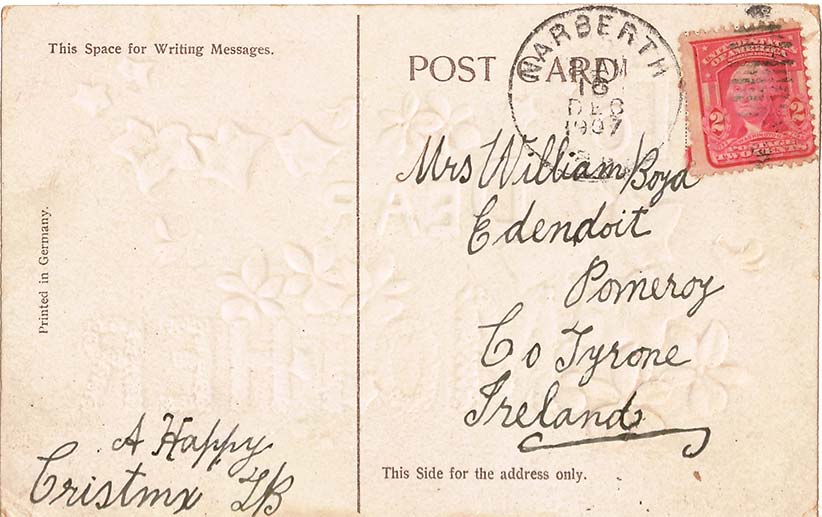 This Space for Writing Messages.
POST CARD
NARBERTH
16
DEC
1907
2 2
Mrs William Boyd
Edendoit
Pomeroy
Co Tyrone
Ireland
Printed in Germany.
A Happy
Cristmx
This Side for the address only.